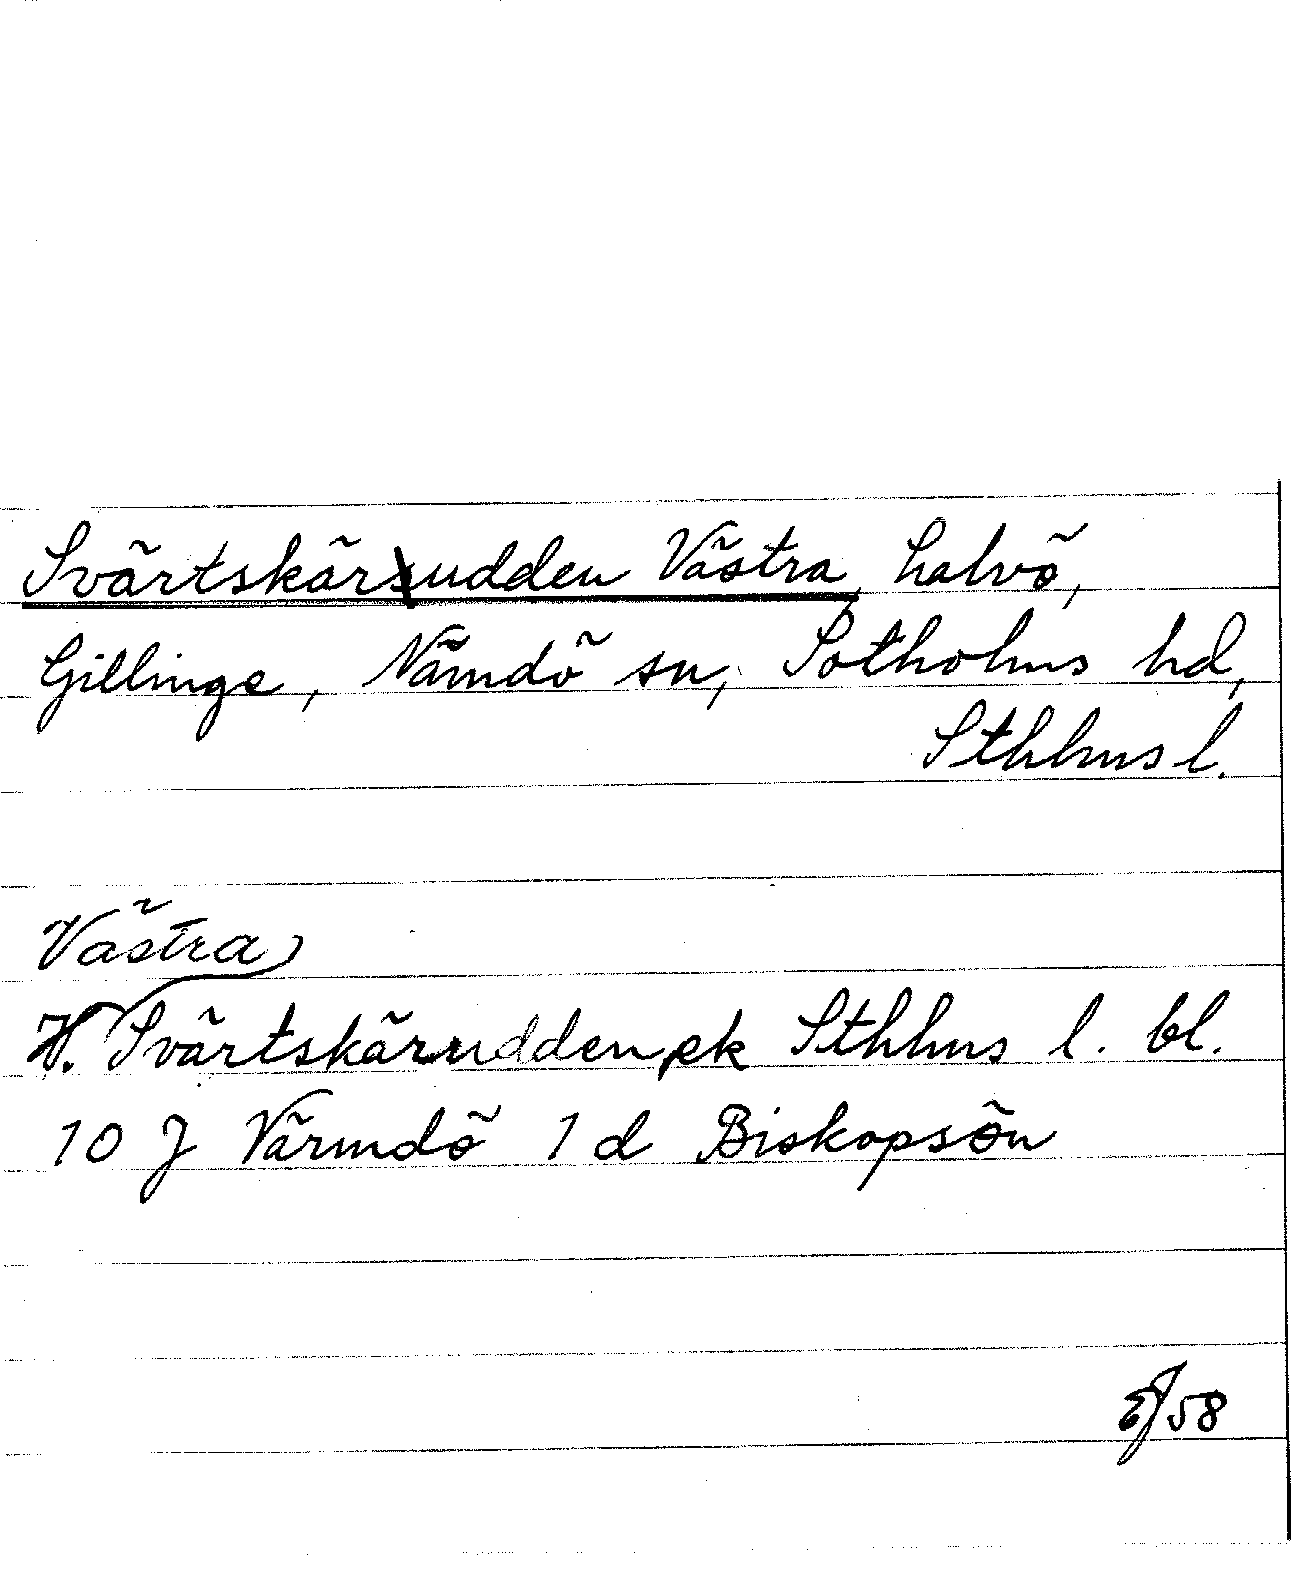 Svärtskärudden Västra, halvö,
Gillinge, Nämdö sn, Sotholms hd,
Sthlms l.
Västra
H. Svärtskärudden, ek Sthlms l. bl.
10 J Värmdö 1 d Biskopsön
EJ 58